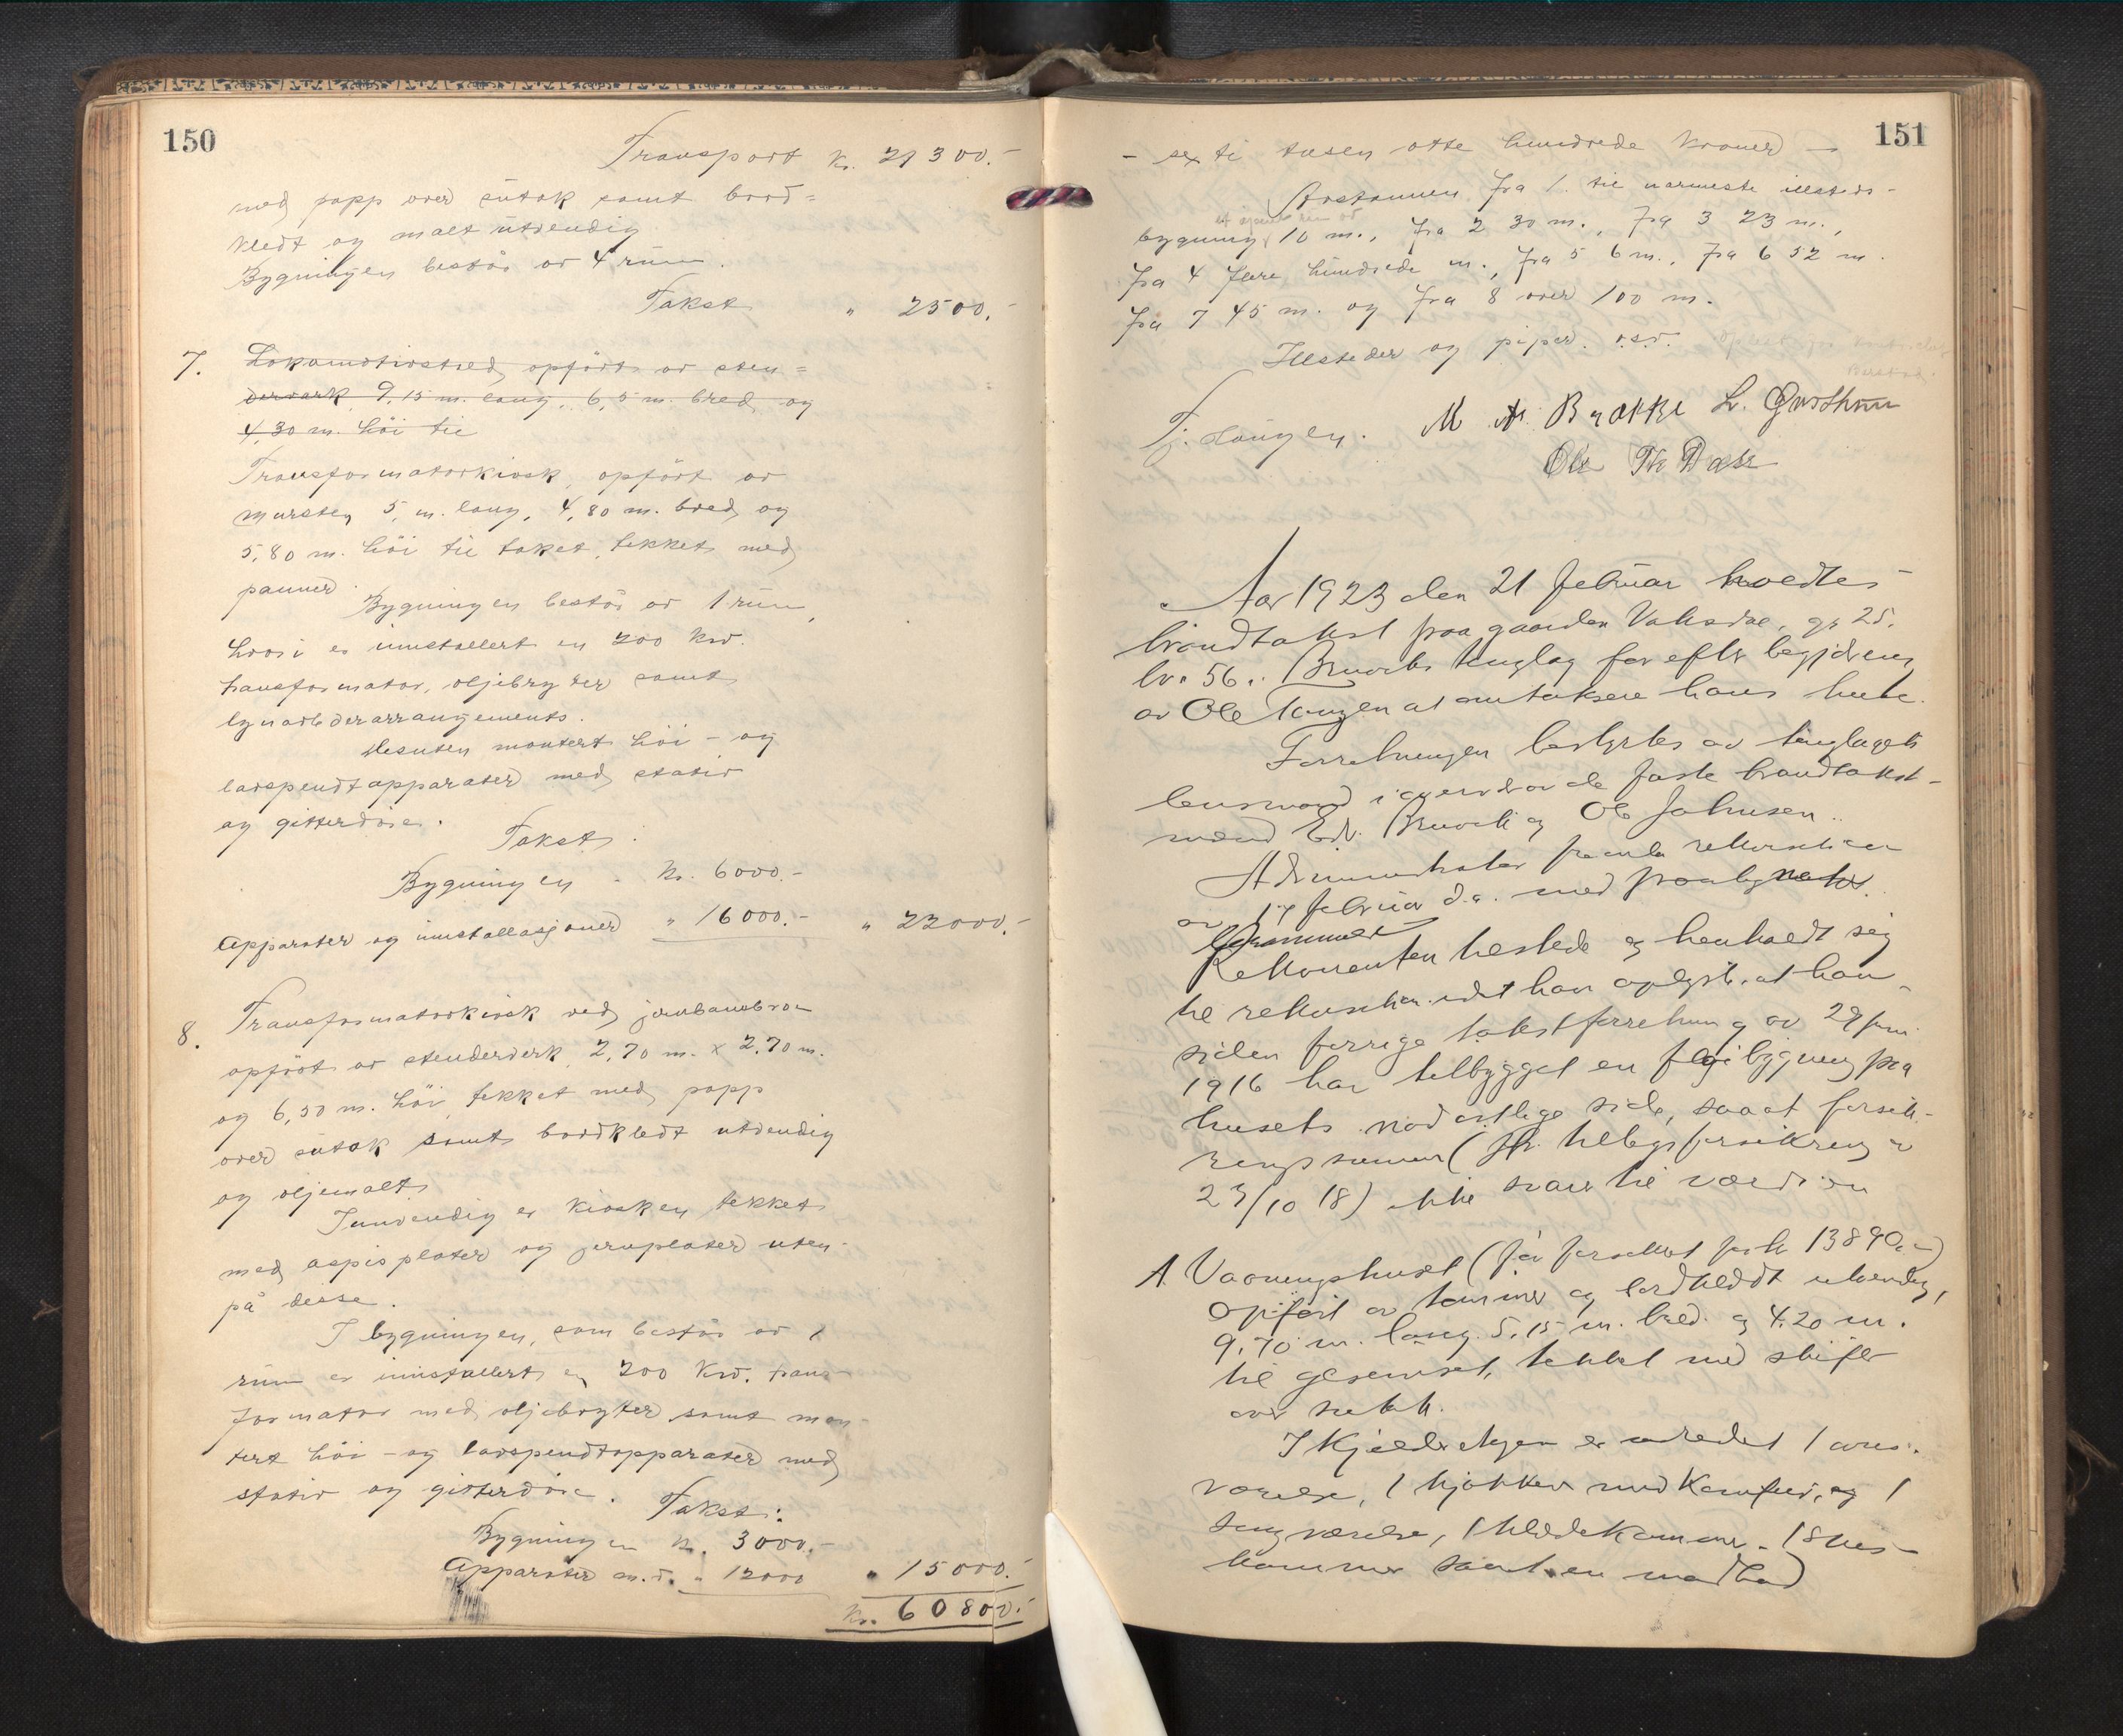 150
Transport Kr. 21300.-
med papp over sutak samt bord=
kledt og malt utvendig
Bygningen består av 4 rum.
Takst " 2500.-
7. Lokomotivstad, opført av sten=
derverk 9,15 m. lang, 6,5 m. bred og
4,30 m. höi til
Transformatorkiosk, opført av
mursten 5, m. lang, 4,80 m. bred og
5,80 m. höi til taket, tekket med
panner.
Bygningen består av 1 rum,
hvori er innstallert en 200 Kw.
transformator, oljebryter samt
lynavlederarrangements.
Desuten montert höi- og
lavspendtapparater med stativ
og gitterdøre.
Takst:
Bygningen - Kr. 6000.-
Apparater og innstallasjoner " 16000.- " 22000.-
8. Transformatorkiosk ved jernbanebroen
opført av stenderverk 2,70 m. x 2,70 m.
og 6,50 m. höi, tekket med papp
over sutak samt bordkledt utvendig
og oljemalt.
Innvendig er kiosken tekket
med aspisplater og jernplater uten-
på desse.
I bygningen, som består av 1
rum er innstallert en 200 Kw. trans-
formator med oljebryter samt mon-
tert höi- og lavspendtapparater med
stativ og gitterdøre.
Takst:
Bygningen Kr. 3000.-
Apparater m.v. " 12000 " 15000.-
Kr. 60800.-
151
- sexti tusen otte hundrede kroner -
Avstannen fra 1. til nærmeste illsteds-
bygning 10 m., fra 2 30 m., fra 3 23 m.,
fra 4 flere hundrede m., fra 5 6 m., fra 6 52 m.
fra 7 45 m. og fra 8 over 100 m.
Illsteder og piper o.s.v.
M A. Brakke L.
Ole
Aar 1923 den 21 februar holdtes
brandtakst paa gaarden Vaksdal, gr 25.
br. 56. Bruvik tinglag for efter begjæring
av Ole at omtaksere hans hus.
Forretningen bestyrtes av tinglagets
lensmand i overvær av de faste brandtakst-
mænd Edv. Bruvik og Ole Johnsen.
Administrator fremla rekvisition
av 17 februar d.a. med paategnet
Rekvirenten tilstede og henholdt sig
til rekvisitionen idet han oplyste, at han
siden forrige takstforretning av 29 juni
1916 har tilbygget en fløibygning paa
husets nordøstlige side, saaat forsik-
ringssummen (jfr. tilbygsforsikring av
23/10 18) ikke svarer til værdien
A. Vaaningshuset (før forsikret for kr 13890.-)
Opført av tømmer og bordklædt utvendig,
9.70 m. lang. 5.15 m. bred. og 4.20 m.
til gesemset, tekket med skifer
over sutak.
I kjelderetagen er indredet 1
værelse, 1 kjøkken med Komfur, og 1
sengværelse, 1 klædekammer. 1 spis-
kammer samt en matbod